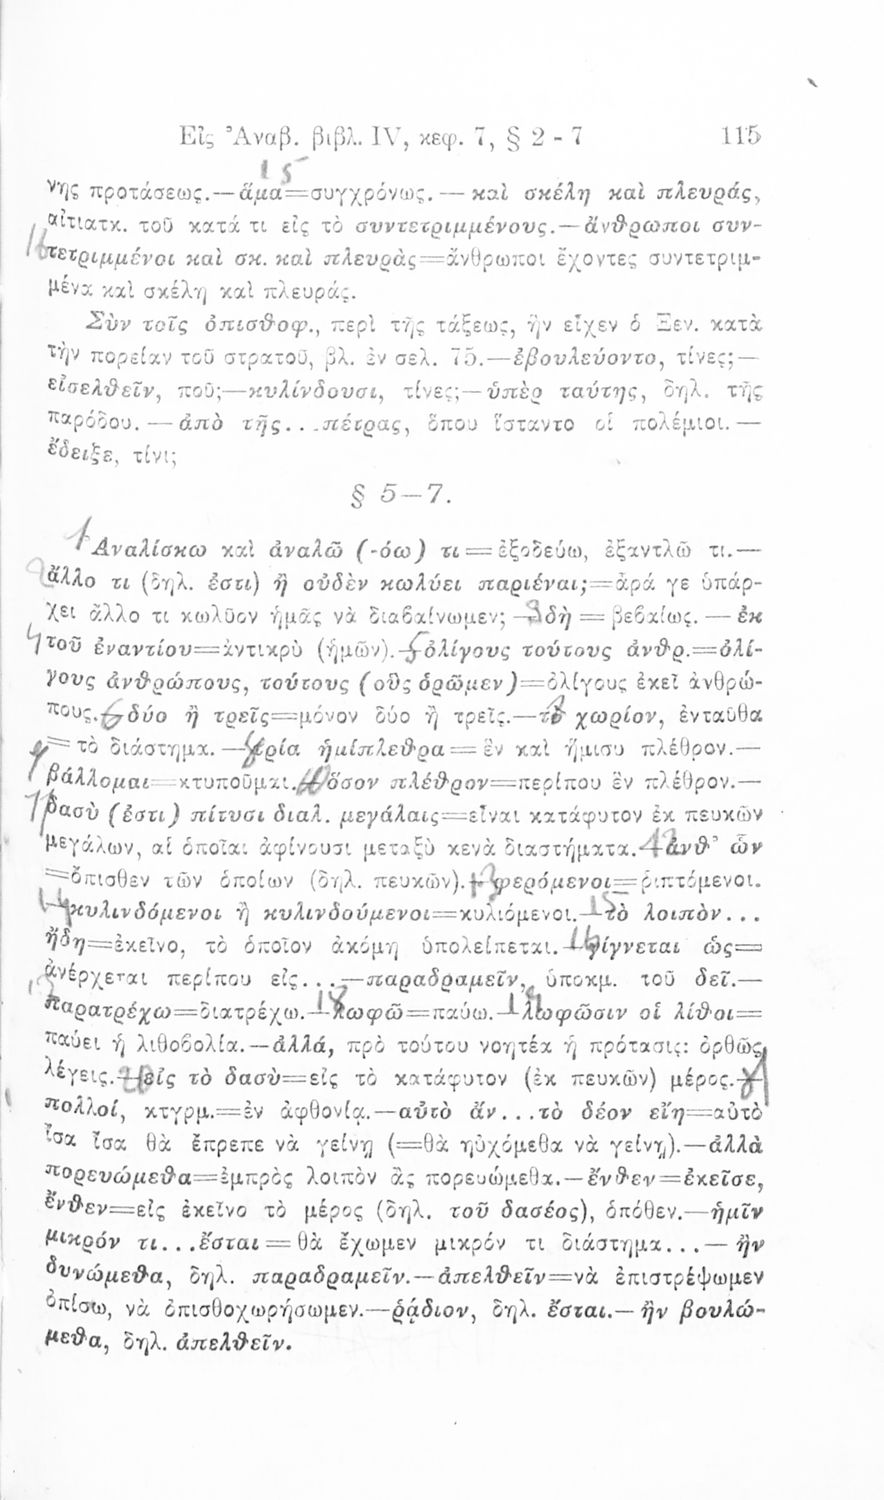 Εἰς Ἀναβ. βιβλ. IV, κεφ. 7, § 2 - 7 115
νης προτάσεως.—ἅμα=συγχρόνως.—καὶ σκέλη καὶ πλευράς,
αἰτιατκ. τοῦ κατά τι εἰς τὸ συντετριμμένους.—ἄνθρωποι συν-
τετριμμένοι καὶ σκ. καὶ πλευρὰς=ἄνθρωποι ἔχοντες συντετριμ-
μένα καὶ σκέλη καὶ πλευράς.
Σὺν τοῖς ὀπισθοφ., περὶ τῆς τάξεως, ἣν εἶχεν ὁ Ξεν. κατὰ
τὴν πορείαν τοῦ στρατοῦ, βλ. ἐν σελ. 75.—ἐβουλεύοντο, τίνες;—
εἰσελθεῖν, ποῦ;—κυλίνδουσι, τίνες;—ὑπὲρ ταύτης, δηλ. τῆς
παρόδου.—ἀπὸ τῆς...πέτρας, ὅπου ἵσταντο οἱ πολέμιοι.—
ἔδειξε, τίνι;
§ 5—7.
Ἀναλίσκω καὶ ἀναλῶ (-όω) τι=ἐξοδεύω, ἐξαντλῶ τι.—
ἄλλο τι (δηλ. ἐστι) ἢ οὐδὲν κωλύει παριέναι;=ἆρά γε ὑπάρ-
χει ἄλλο τι κωλῦον ἡμᾶς νὰ διαβαίνωμεν;—δὴ=βεβαίως.—ἐκ
τοῦ ἐναντίου=ἀντικρὺ (ἡμῶν).—ὀλίγους τούτους ἀνθρ.=ὀλί-
γους ἀνθρώπους, τούτους (οὓς ὁρῶμεν)=ὀλίγους ἐκεῖ ἀνθρώ-
πους.—δύο ἢ τρεῖς=μόνον δύο ἢ τρεῖς.—τὸ χωρίον, ἐνταῦθα
=τὸ διάστημα.—τρία ἡμίπλεθρα=ἓν καὶ ἥμισυ πλέθρον.—
βάλλομαι=κτυποῦμαι.—ὅσον πλέθρον=περίπου ἓν πλέθρον.—
δασὺ (ἐστι) πίτυσι διαλ. μεγάλαις=εἶναι κατάφυτον ἐκ πευκῶν
μεγάλων, αἱ ὁποῖαι ἀφίνουσι μεταξὺ κενὰ διαστήματα.—ἀνθ’ ὧν
=ὄπισθεν τῶν ὁποίων (δηλ. πευκῶν).—φερόμενοι=ῥιπτόμενοι.
—κυλινδόμενοι ἢ κυλινδούμενοι=κυλιόμενοι.—τὸ λοιπὸν...
ἤδη=ἐκεῖνο, τὸ ὁποῖον ἀκόμη ὑπολείπεται.—γίγνεται ὡς=
ἀνέρχεται περίπου εἰς...—παραδραμεῖν, ὑποκμ. τοῦ δεῖ.—
παρατρέχω=διατρέχω.—λωφῶ=παύω.—λωφῶσιν οἱ λίθοι=
παύει ἡ λιθοβολία.—ἀλλά, πρὸ τούτου νοητέα ἡ πρότασις: ὀρθῶς
λέγεις.—εἰς τὸ δασὺ=εἰς τὸ κατάφυτον (ἐκ πευκῶν) μέρος.—
πολλοί, κτγρμ.=ἐν ἀφθονίᾳ.—αὐτὸ ἄν...τὸ δέον εἴη=αὐτὸ
ἴσα ἴσα θὰ ἔπρεπε νὰ γείνῃ (=θὰ ηὐχόμεθα νὰ γείνῃ).—ἀλλὰ
πορευώμεθα=ἐμπρὸς λοιπὸν ἂς πορευώμεθα.—ἔνθεν=ἐκεῖσε,
ἔνθεν=εἰς ἐκεῖνο τὸ μέρος (δηλ. τοῦ δασέος), ὁπόθεν.—ἡμῖν
μικρόν τι...ἔσται=θὰ ἔχωμεν μικρόν τι διάστημα...—ἢν
δυνώμεθα, δηλ. παραδραμεῖν.—ἀπελθεῖν=νὰ ἐπιστρέψωμεν
ὀπίσω, νὰ ὀπισθοχωρήσωμεν.—ῥᾴδιον, δηλ. ἔσται.—ἢν βουλώ-
μεθα, δηλ. ἀπελθεῖν.